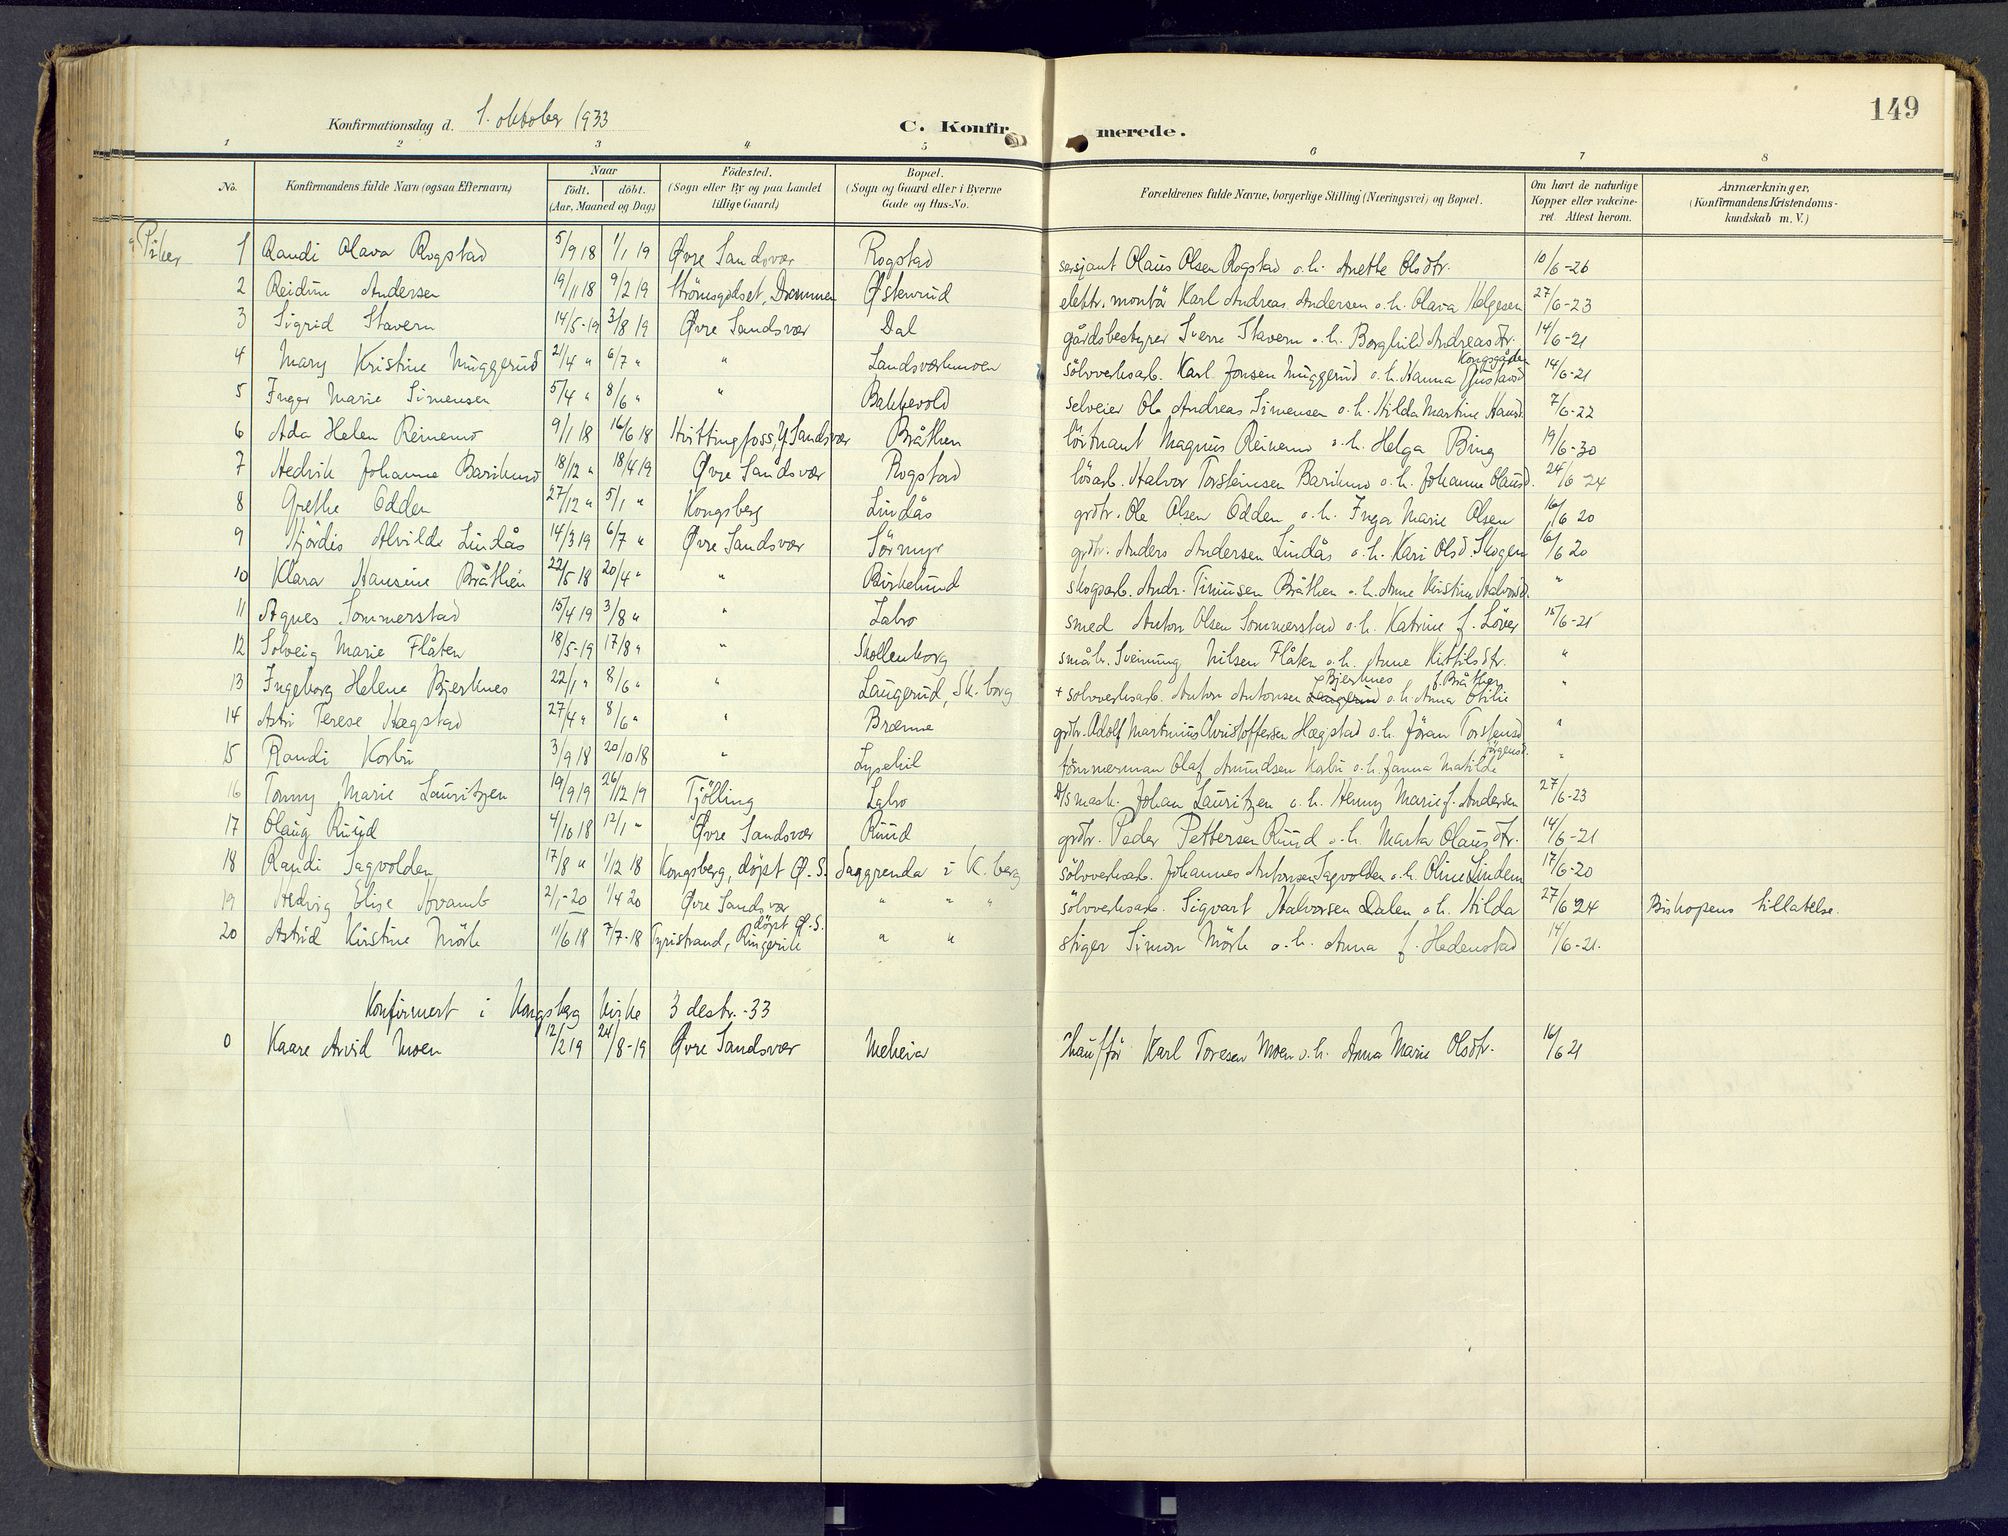 149
Konfirmationsdag d. 1. oktober 1933 C. Konfirmerede.
1 2 3 4 5 6 7 8
No. Konfirmandens fulde Navn (ogsaa Efternavn) Naar födt. döbt. (Aar, Maaned og Dag) Födested. (Sogn eller By og paa Landet tillige Gaard) Bopæl. (Sogn og Gaard eller i Byerne Gade og Hus-No. Forældrenes fulde Navne, borgerlige Stilling (Næringsvei) og Bopæl. Om havt de naturlige Kopper eller vakcineret. Attest herom. Anmærkninger, (Konfirmandens Kristendomskundskab m. V.)
Piker
1 Randi Olava Rogstad 5/9 18 1/1 19 Øvre Sandsvær Rogstad sersjant Olaus Olsen Rogstad o.h. Anette Olsdtr. 10/6-26
2 Reidun Andersen 19/11 18 9/2 19 Strömsgodset, Drammen Østerud elektr. montör Karl Andreas Andersen o.h. Olava Helgesen 27/6-23
3 Sigrid Stavern 14/5-19 3/8 19 Øvre Sandsvær Dal gårdsbestyrer Sverre Stavern o.h. Borghild Andreasdtr. 14/6-21
4 Mary Kristine Muggerud 21/4 " 6/7 " " Landsverkmoen sölvverksarb. Karl Jonsen Muggerud o.h. Hanna Gustavsd Kongsgården 14/6-21
5 Inger Marie Simensen 5/4 " 8/6 " " Bakkevold selveier Ole Andreas Simensen o.h. Hilda Martine Hansd. 7/6-22
6 Ada Helen Reinemo 9/1 18 16/6 18 Hvittingfoss, Y. Sandsvær Bråthen löitnant Magnus Reinemo o.h. Helga Bing 19/6-30
7 Hedvik Johanne Barikmo 18/12 " 18/4 19 Øvre Sandsvær Rogstad lösarb. Halvor Torsteinsen Barikmo o.h. Johanne Olausd. 24/6-24
8 Grethe Odden 27/12 " 5/1 " Kongsberg Lindås grdbr. Ole Olsen Odden o.h. Inga Marie Olsen 16/6 20
9 Hjördis Alvilde Lindås 14/3 19 6/7 " Øvre Sandsvær Sörmyr grdbr. Anders Andersen Lindås o.h. Kari Olsd. Skogen 16/6 20
10 Klara Hansine Bråthen 22/5 18 20/4 " " Birkelund skogsarb. Andr. Timiisen Bråthen o.h. Anne Kristine Halvorsd. "
11 Agnes Sommerstad 15/4 19 3/8 " " Labro smed Anton Olsen Sommerstad o.h. Katrine f. Löver 15/6-21
12 Solveig Marie Flåten 18/5-19 17/8 " " Skollenborg småbr. Sveinung Nilsen Flåten o.h. Anne Kittilsdtr. "
13 Ingeborg Helene Bjerknes 22/1 " 8/6 " " Laugerud, Sk.borg + sölvverksarb. Anton Antonsen Laugerud Bjerknes o.h. Anna Otilie f. Bråthen "
14 Astri Terese Hægstad 27/4 " 8/6 " " Bræmne grdbr. Adolf Martinius Christoffersen Hægstad o.h. Jöran Torstensd "
15 Randi Korbu 3/9 18 20/10 18 " Lysehil tömmerman Olaf Amundsen Kabu o.h. Janna Matilde Jörgensd. "
16 Tonny Marie Lauritzen 19/9 19 26/12 19 Tjölling Labro D/S mask. Johan Lauritzen o.h. Henny Marie f. Andersen 27/6-23
17 Olaug Ruud 4/10 18 12/1 " Øvre Sandsvær Ruud grdbr. Peder Pettersen Ruud o.h. Marta Olausdtr. 14/6-21
18 Randi Sagvolden 17/8 " 1/12 18 Kongsberg, döpt Ø.S. Saggrenda i K.berg sölvverksarb. Johannes Antonsen Sagvolden o.h. Oline Lindem 17/6-20
19 Hedvig Elise Hvamb 2/1-20 1/4 20 Øvre Sandsvær " " " sölvverksarb. Sigvart Halvorsen Dalen o.h. Hilda 27/6 24 Biskopens tillatelse.
20 Astrid Kirstine Mörk 11/6 18 7/7-18 Tyristrand, Ringerik döpt Ø.S. " " stiger Simon Mörk o.h. Anna f. Hedenstad 14/6-21.
Konfirmert i Kongsberg Kirke 3 desbr.-33
0 Kaare Arvid Moen 12/2 19 24/8-19 Øvre Sandsvær Meheia Chaufför Karl Toresen Moen o.h. Anna Marie Olsdtr. 16/6 21